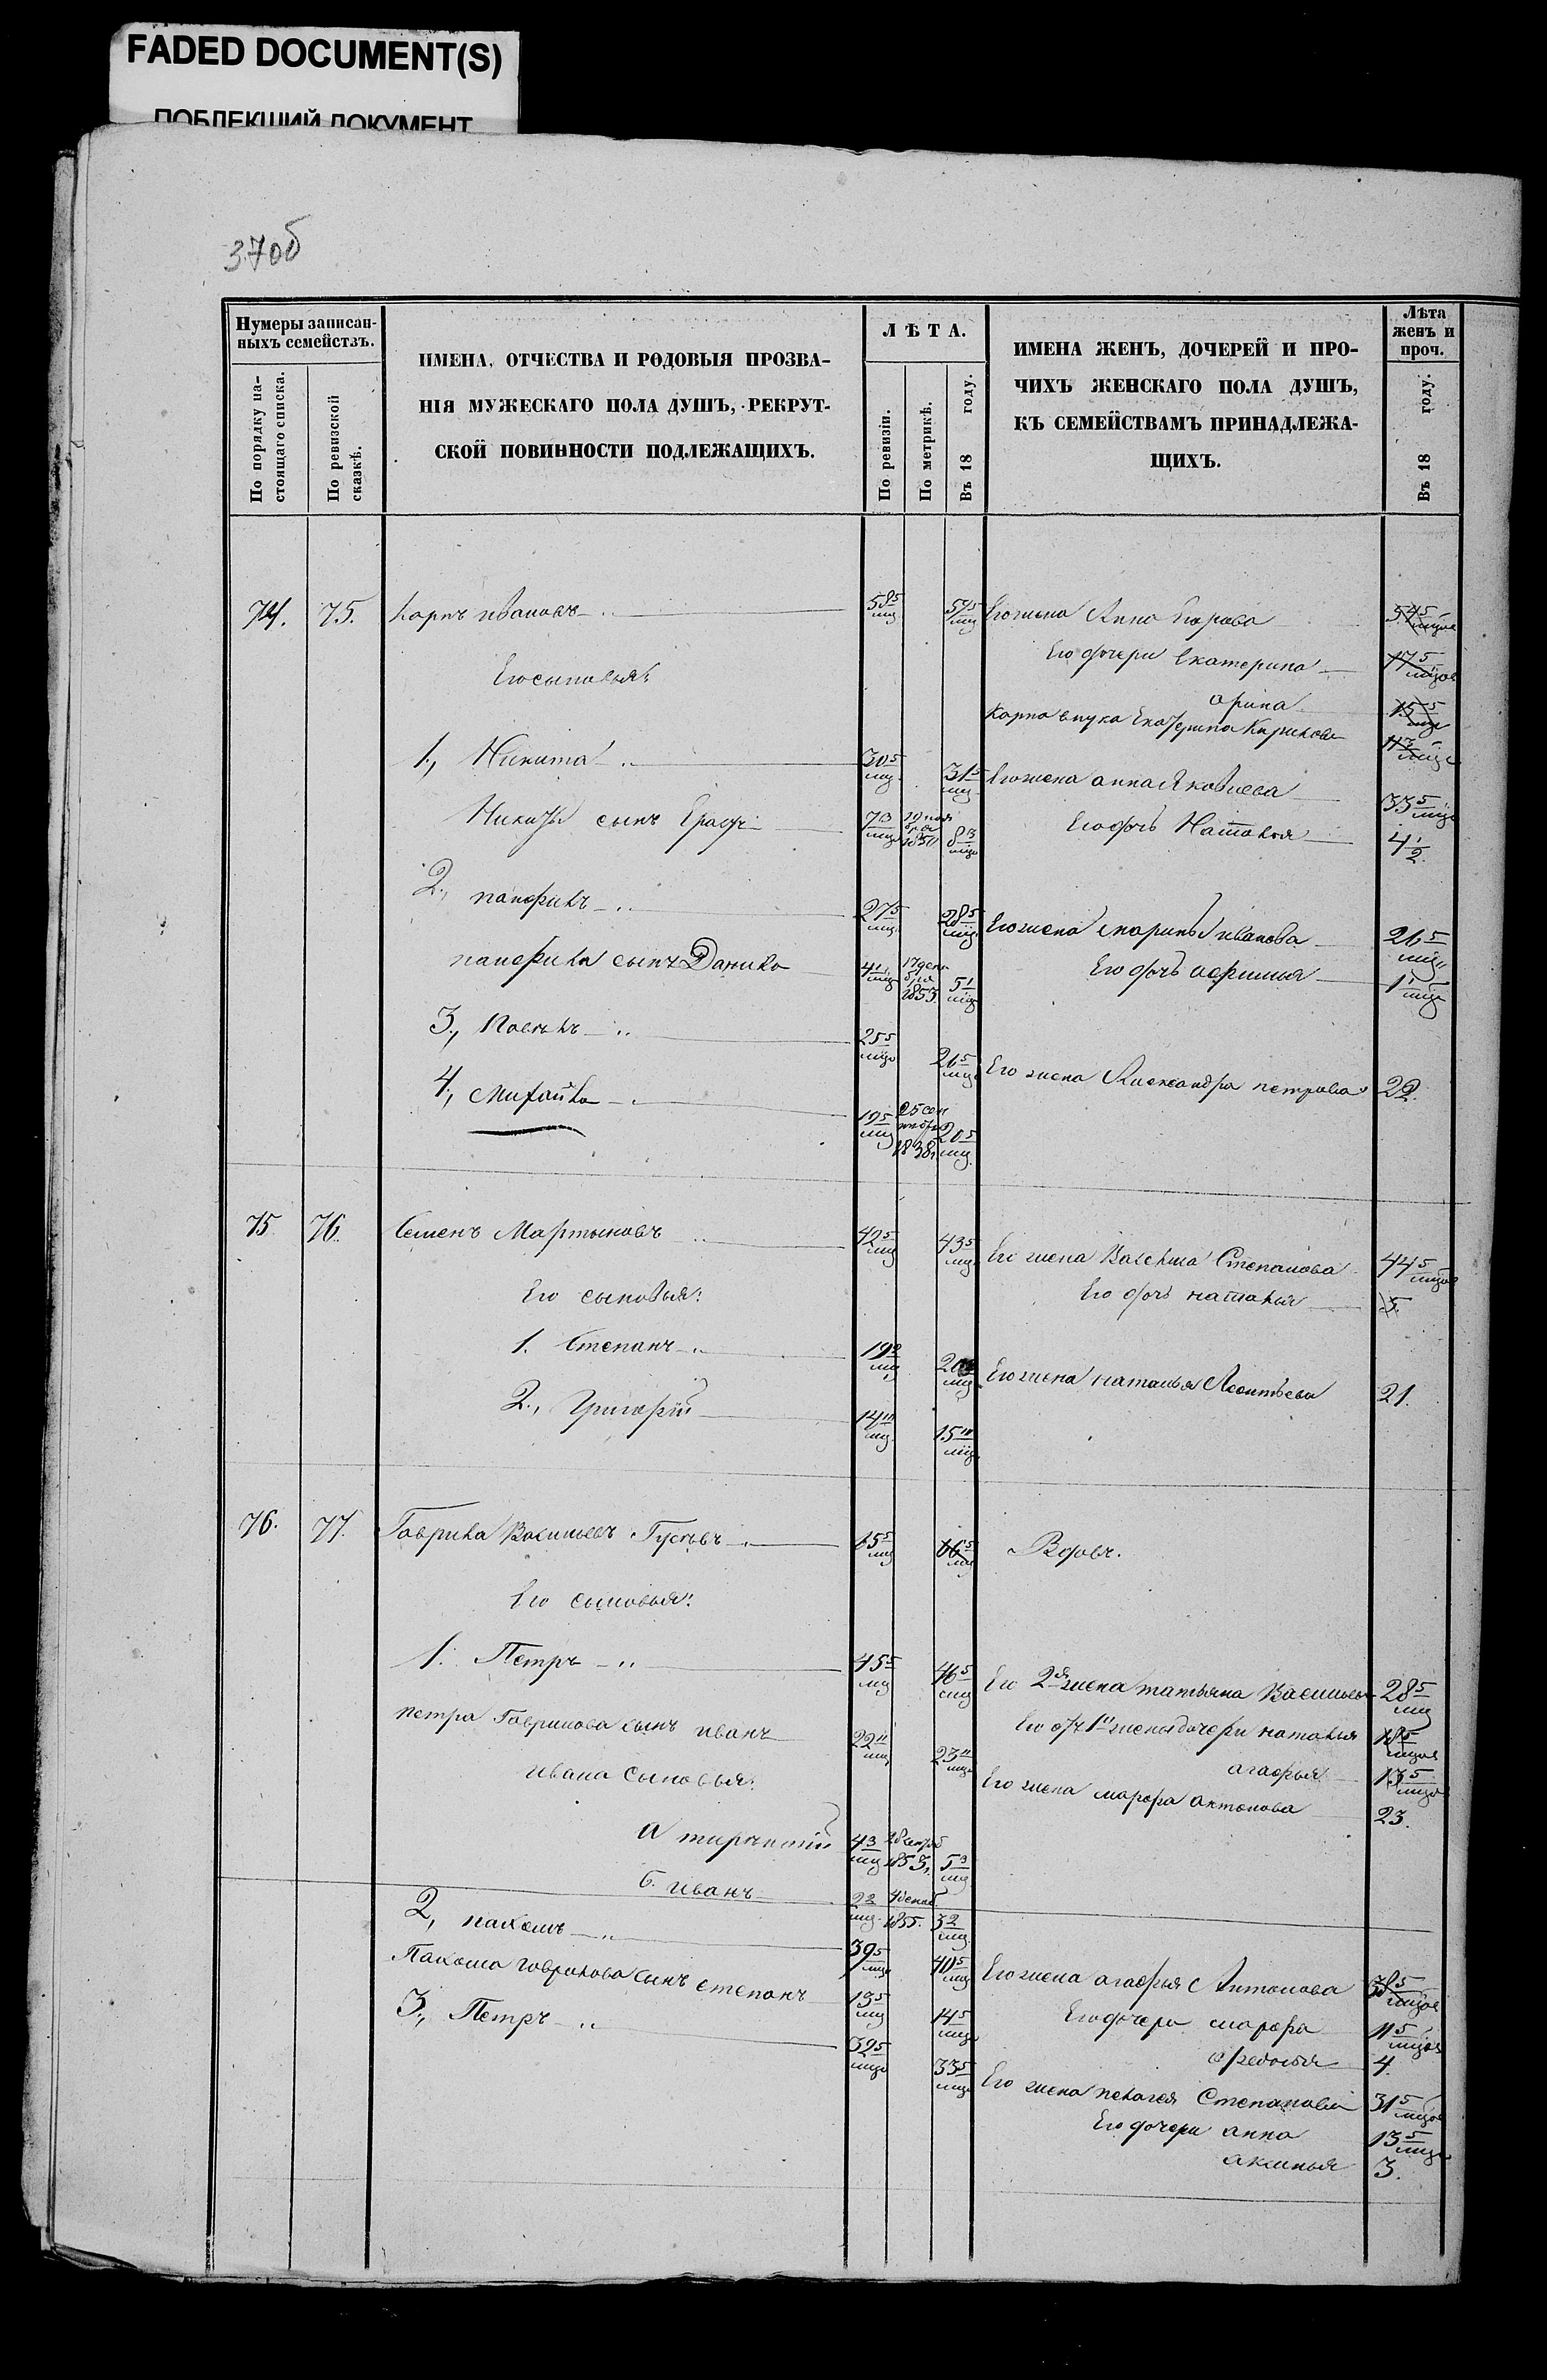 FADED DOCUMENT(S)
ПОБЛЕКШИЙ ДОКУМЕНТ
37об
Нумеры записан-
ныхъ семействъ.
По порядку на-
стоящаго списка.
По ревизской
сказкѣ.
ИМЕНА, ОТЧЕСТВА И РОДОВЫЯ ПРОЗВА-
НІЯ МУЖЕСКАГО ПОЛА ДУШЪ, РЕКРУТ-
СКОЙ ПОВИННОСТИ ПОДЛЕЖАЩИХЪ.
ЛѢТА.
По ревизіи.
По метрикѣ.
Въ 18 году.
ИМЕНА ЖЕНЪ, ДОЧЕРЕЙ И ПРО-
ЧИХЪ ЖЕНСКАГО ПОЛА ДУШЪ,
КЪ СЕМЕЙСТВАМЪ ПРИНАДЛЕЖА-
ЩИХЪ.
Лѣта
женъ и
проч.
Въ 18 году.
74. 75. Карпъ Ивановъ 58 5 мц 59 5 мц Его жена Анна 54 5 мцов
Его сыновья: Его дочери Екатерина 17 5 мцов
арина 15 5 мц
Карпа внука Екатерина
1, Никита 30 5 мц 31 5 мц Его жена анна Яковлева 33 5 мцов
Никиты сынъ 7 3 мц 1850 8 3 мц Его дочь Наталья 4 1/2
2, панфилъ 27 5 мц. 28 5 мц. Его жена Марина иванова 26 5 мц
панфила сынъ Данила 4 1 мц 17 декабря 1853. 5 1 мц Его дочь афимья 1 1 мц
3, Павелъ 25 5 мцо 26 5 мц Его жена Александра петрова 22.
4, Михайла 19 5 мц 25 сентября 1838. 20 5 мц.
75 76. Семенъ Мартыновъ 42 5 мц 43 5 мц. Его жена Васелиса Степанова 44 5 мцов
Его сыновья: Его дочь наталья 5.
1. Степанъ 19 9 мц 20 мц Его жена наталья Леонтьева 21.
2., Григорій 14 10 мц. 15 10 мц.
76. 77. Гаврила Васильевъ Гусевъ 65 5 мц 66 5 мц Вдовъ.
Его сыновья:
1. Петръ 45 5 мц 46 5 мц Его 2я жена татьяна Васильева 28 5 мц
петра Гаврилова сынъ иванъ 22 11 мц 23 11 мц Его отъ 1й жены дочери наталья 18 5 мцов
ивана сыновья: агафья 13 5 мцов
Его жена марфа антонова 23.
а 4 3 мц 1853. 5 3 мц
б. иванъ 2 2 мц. 4 декаб 1855. 3 2 мц.
2, пахомъ 39 5 мц 40 5 мц Его жена агафья Антонова 38 5 мцов
Пахома гаврилова сынъ степанъ 13 5 мц 14 5 мц Его дочери марфа 11 5 мцов
федосья 4.
3, Петръ 32 5 мцо 33 5 мц Его жена пелагея Степанова 31 5 мцов
Его дочери анна 13 5 мц
аксинья 3.